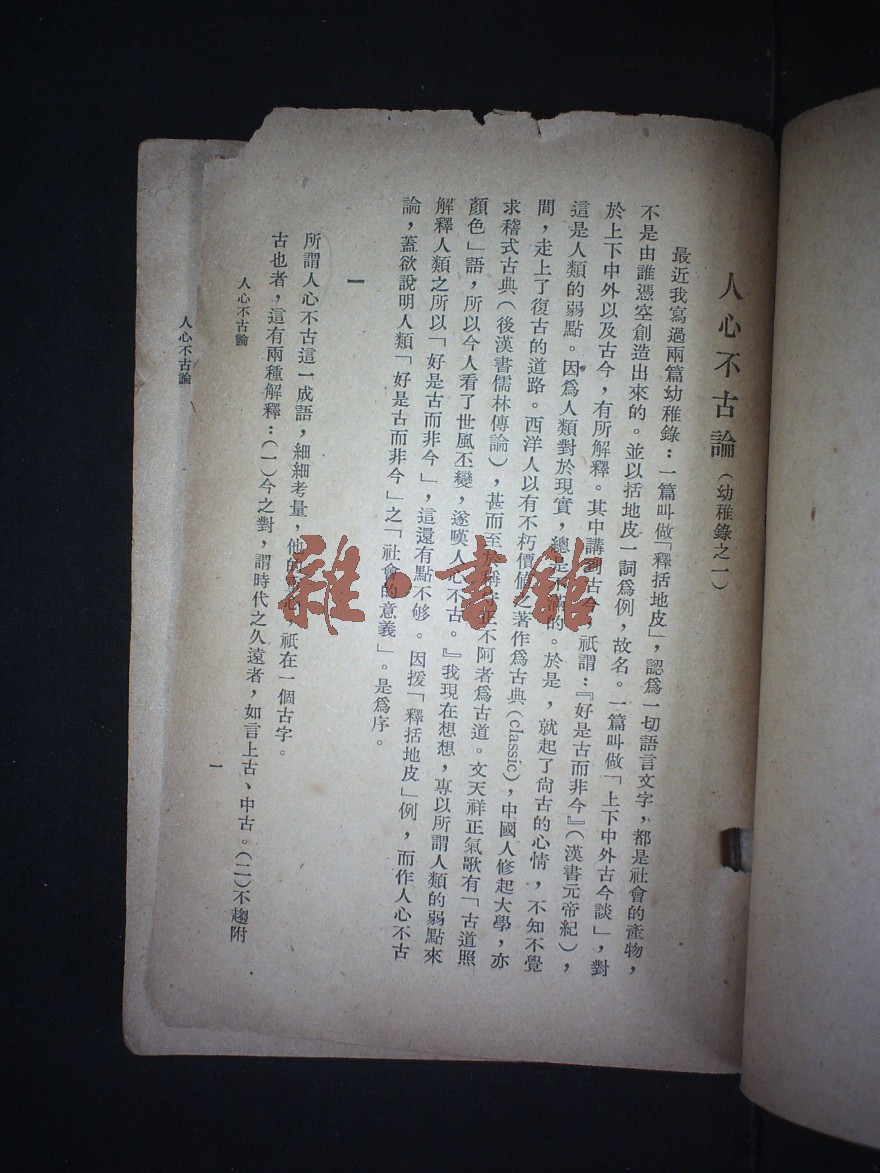 人心不古論（幼稚錄之一）
最近我寫過兩篇幼稚錄：一篇叫做「釋括地皮」，認爲一切語言文字，都是社會的產物，
不是由誰憑空創造出來的。並以括地皮一詞爲例，故名。一篇叫做「上下中外古今談」，對
於上下中外以及古今，有所解釋。其中講到古今，祇謂：『好是古而非今』（漢書元帝紀），
這是人類的弱點。因爲人類對於現實，總是不滿的。於是，就起了尙古的心情，不知不覺
間，走上了復古的道路。西洋人以有不朽價值之著作爲古典(classic)，中國人修起大學，亦
求稽式古典（後漢書儒林傳論），甚而至於稱守正不阿者爲古道。文天祥正氣歌有「古道照
顏色」語，所以今人看了世風丕變，遂嘆人心不古。『我現在想想，專以所謂人類的弱點來
解釋人類之所以「好是古而非今」，這還有點不够。因援「釋括地皮」例，而作人心不古
論，蓋欲說明人類「好是古而非今」之「社會的意義」。是爲序。
一
所謂人心不古這一成語，細細考量，他的心，祇在一個古字。
古也者，這有兩種解釋：(一)今之對，謂時代之久遠者，如言上古、中古。(二)不趨附
人心不古論
一
人心不古論
雜·書館